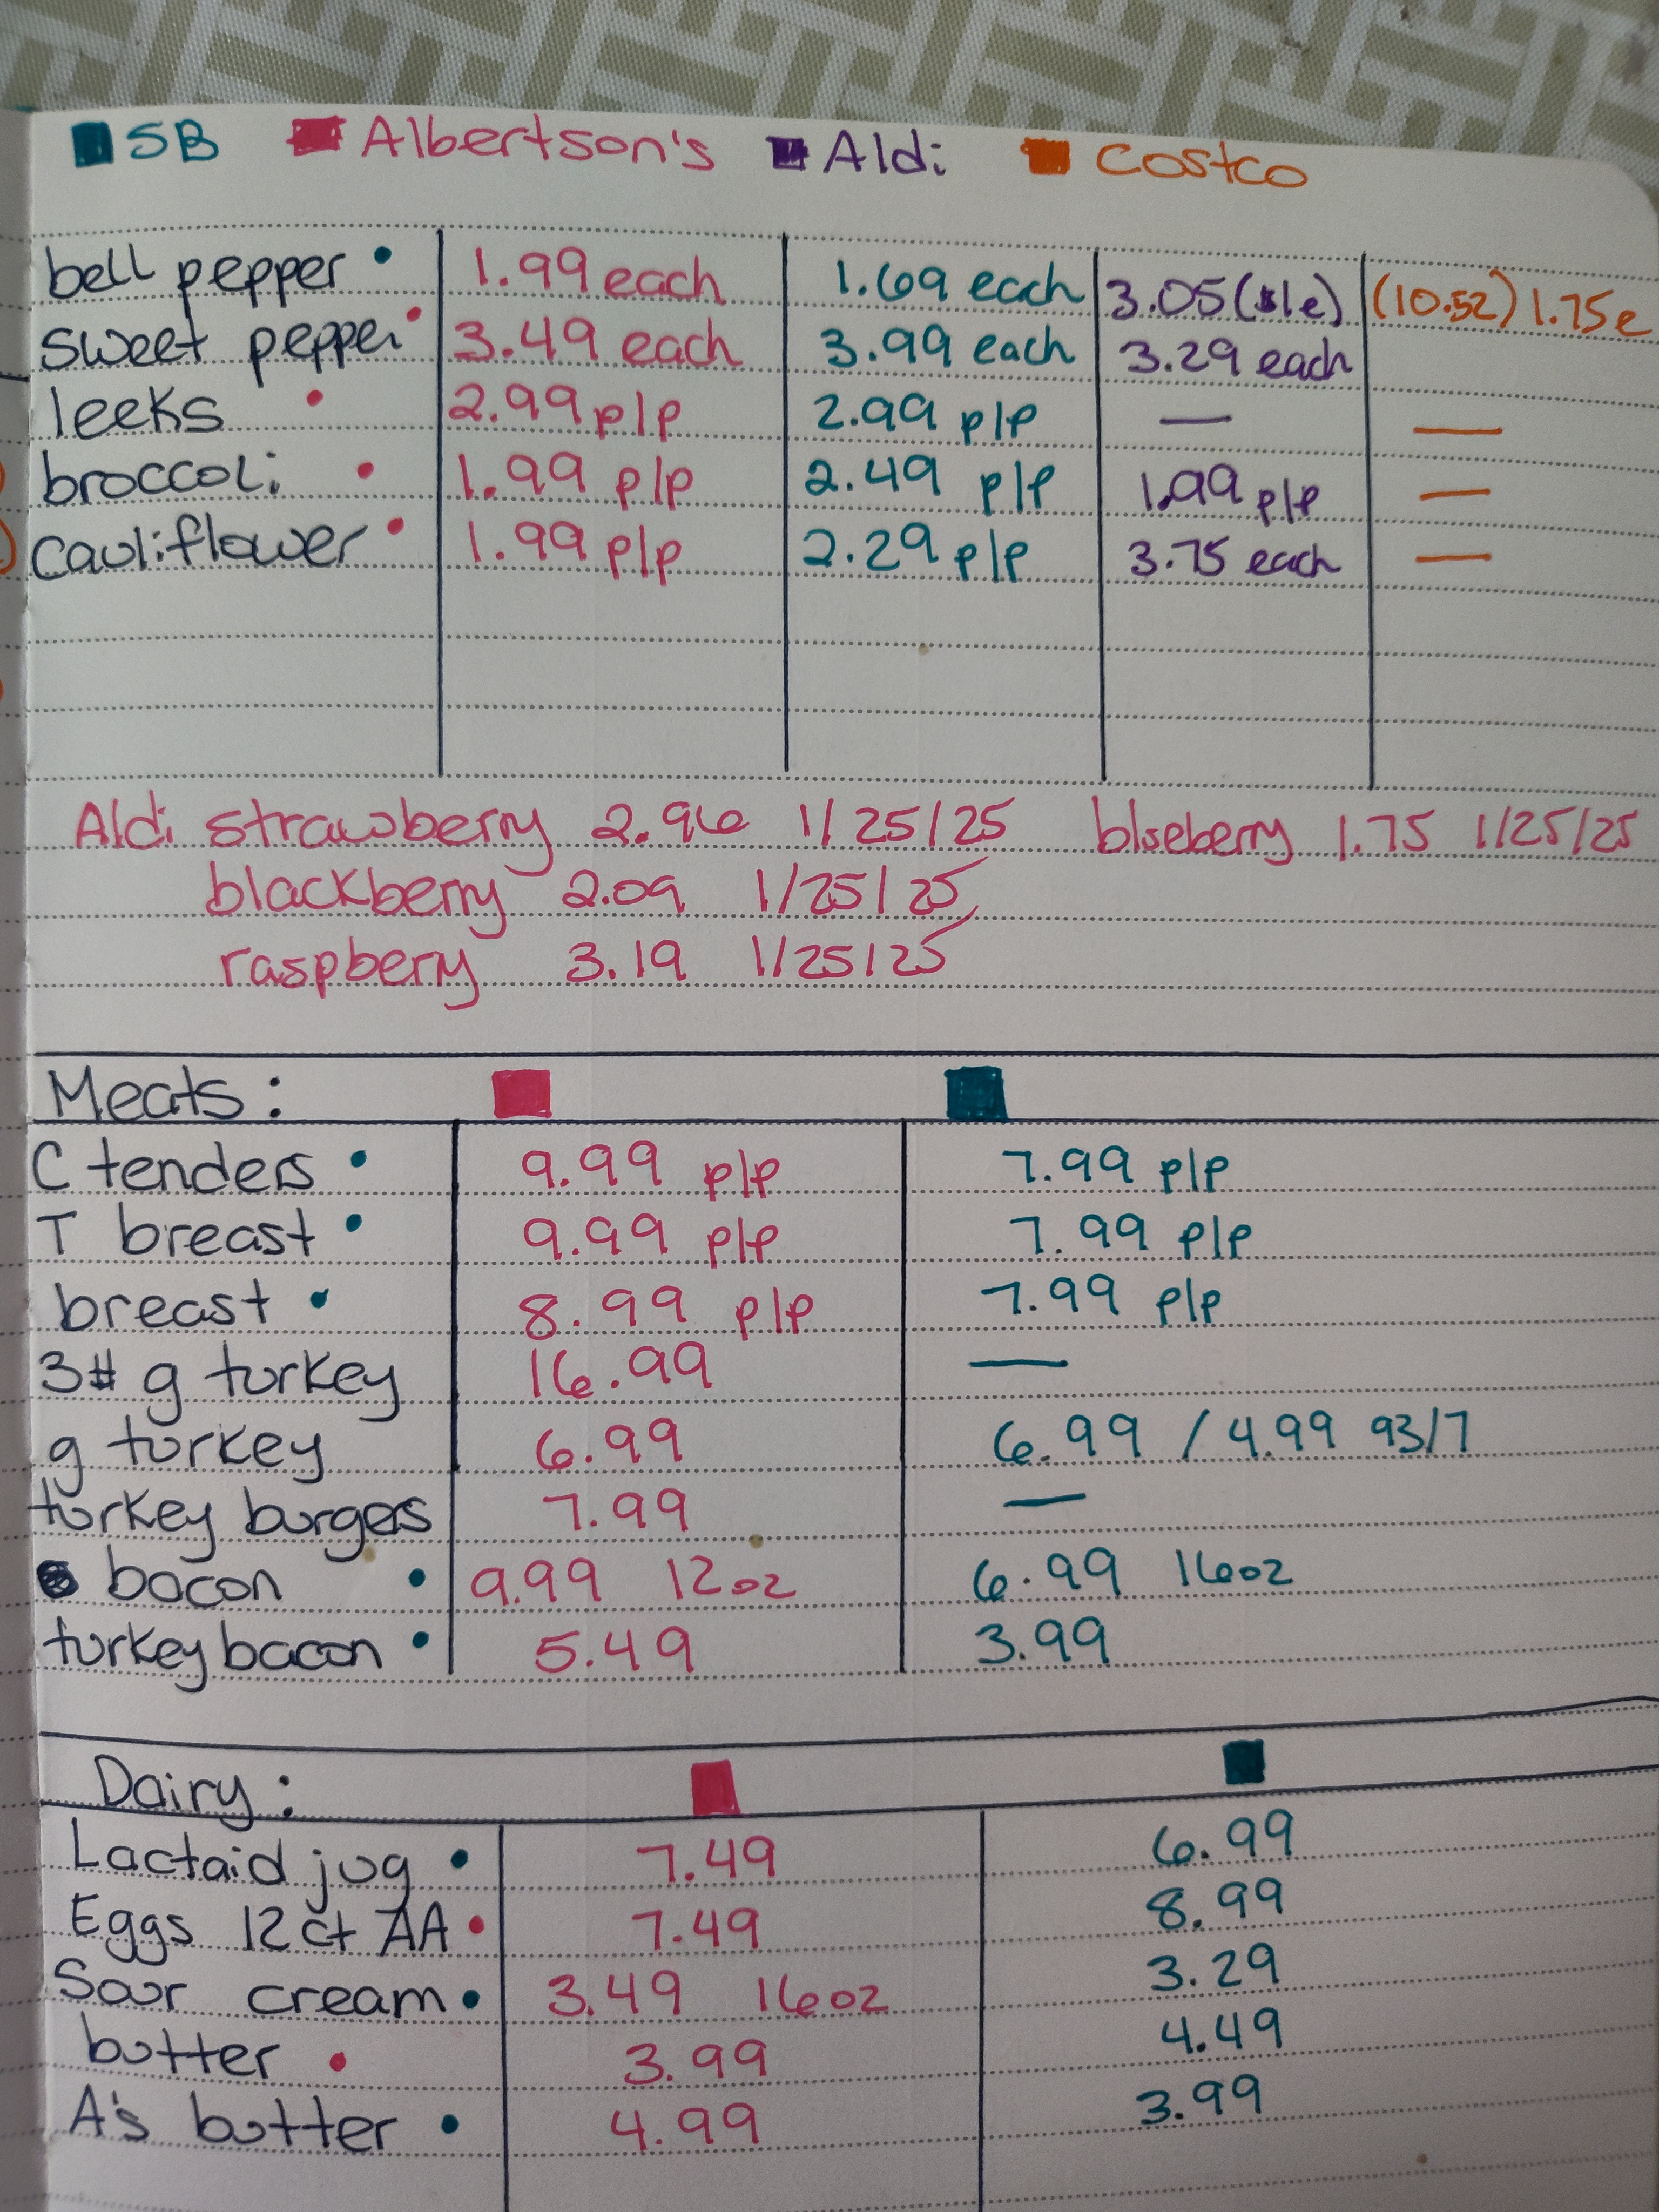 SB Albertson's Aldi Costco
bell pepper 1.99 each 1.69 each 3.05 (10.52) 1.75e
sweet pepper 3.49 each 3.99 each 3.29 each
leeks 2.99 p/p 2.99 p/p —
broccoli 1.99 p/p 2.49 p/p 1.99 p/p —
cauliflower 1.99 p/p 2.29 p/p 3.75 each —
Aldi strawberry 2.96 1/25/25 blueberry 1.75 1/25/25
blackberry 2.09 1/25/25
raspberry 3.19 1/25/25
Meats:
C tenders 9.99 p/p 7.99 p/p
T breast 9.99 p/p 7.99 p/p
breast 8.99 p/p 7.99 p/p
3# g turkey 16.99 —
g turkey 6.99 6.99 / 4.99 93/7
turkey burgers 7.99 —
bacon 9.99 12oz 6.99 16oz
turkey bacon 5.49 3.99
Dairy:
Lactaid jug 7.49 6.99
Eggs 12ct AA 7.49 8.99
Sour cream 3.49 16oz 3.29
butter 3.99 4.49
A's butter 4.99 3.99